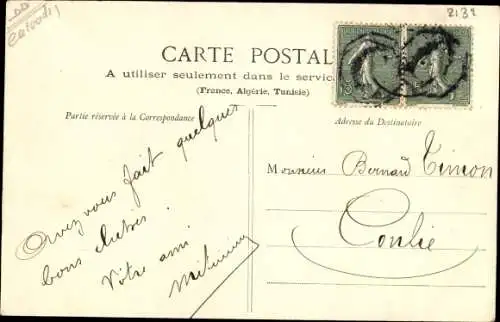 2132
CARTE POSTAL
A utiliser seulement dans le servic
(France, Algérie, Tunisie)
Partie réservée à la Correspondance
Adresse du Destinataire
Avez vous fait quelques
bons
Votre ami
Monsieur Bernard Timon
Conlie